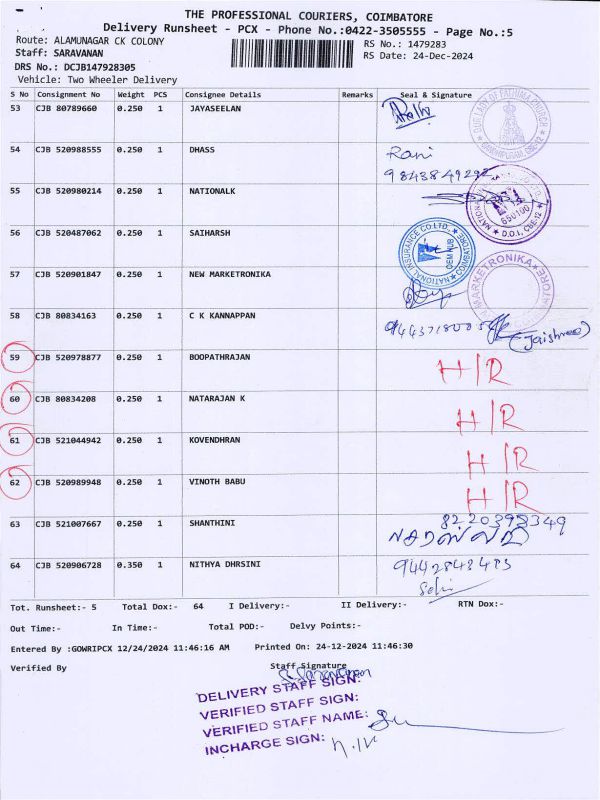 THE PROFESSIONAL COURIERS, COIMBATORE
Delivery Runsheet - PCX - Phone No.:0422-3505555 - Page No.:5
Route: ALAMUNAGAR CK COLONY
RS No.: 1479283
Staff: SARAVANAN
RS Date: 24-Dec-2024
DRS No.: DCJB147928305
Vehicle: Two Wheeler Delivery
S No Consignment No Weight PCS Consignee Details Remarks Seal & Signature
53 CJB 80789660 0.250 1 JAYASEELAN
OUR LADY OF FATIMA CHURCH
54 CJB 520988555 0.250 1 DHASS Rani
55 CJB 520980214 0.250 1 NATIONALK
D.O.I, CBE-12
56 CJB 520487062 0.250 1 SAIHARSH
NATIONAL INSURANCE CO.LTD. COIMBATORE
57 CJB 520901847 0.250 1 NEW MARKETRONIKA
MARKETRONIKA
58 CJB 80834163 0.250 1 C K KANNAPPAN (Jaishree)
59 CJB 520978877 0.250 1 BOOPATHRAJAN H/R
60 CJB 80834208 0.250 1 NATARAJAN K H/R
61 CJB 521044942 0.250 1 KOVENDHRAN H/R
62 CJB 520989948 0.250 1 VINOTH BABU H/R
63 CJB 521007667 0.250 1 SHANTHINI 8220398349
64 CJB 520906728 0.350 1 NITHYA DHRSINI
Tot. Runsheet:- 5 Total Dox:- 64 I Delivery:- II Delivery:- RTN Dox:-
Out Time:- In Time:- Total POD:- Delvy Points:-
Entered By :GOWRIPCX 12/24/2024 11:46:16 AM Printed On: 24-12-2024 11:46:30
Verified By Staff Signature
DELIVERY STAFF SIGN:
VERIFIED STAFF SIGN:
VERIFIED STAFF NAME:
INCHARGE SIGN: